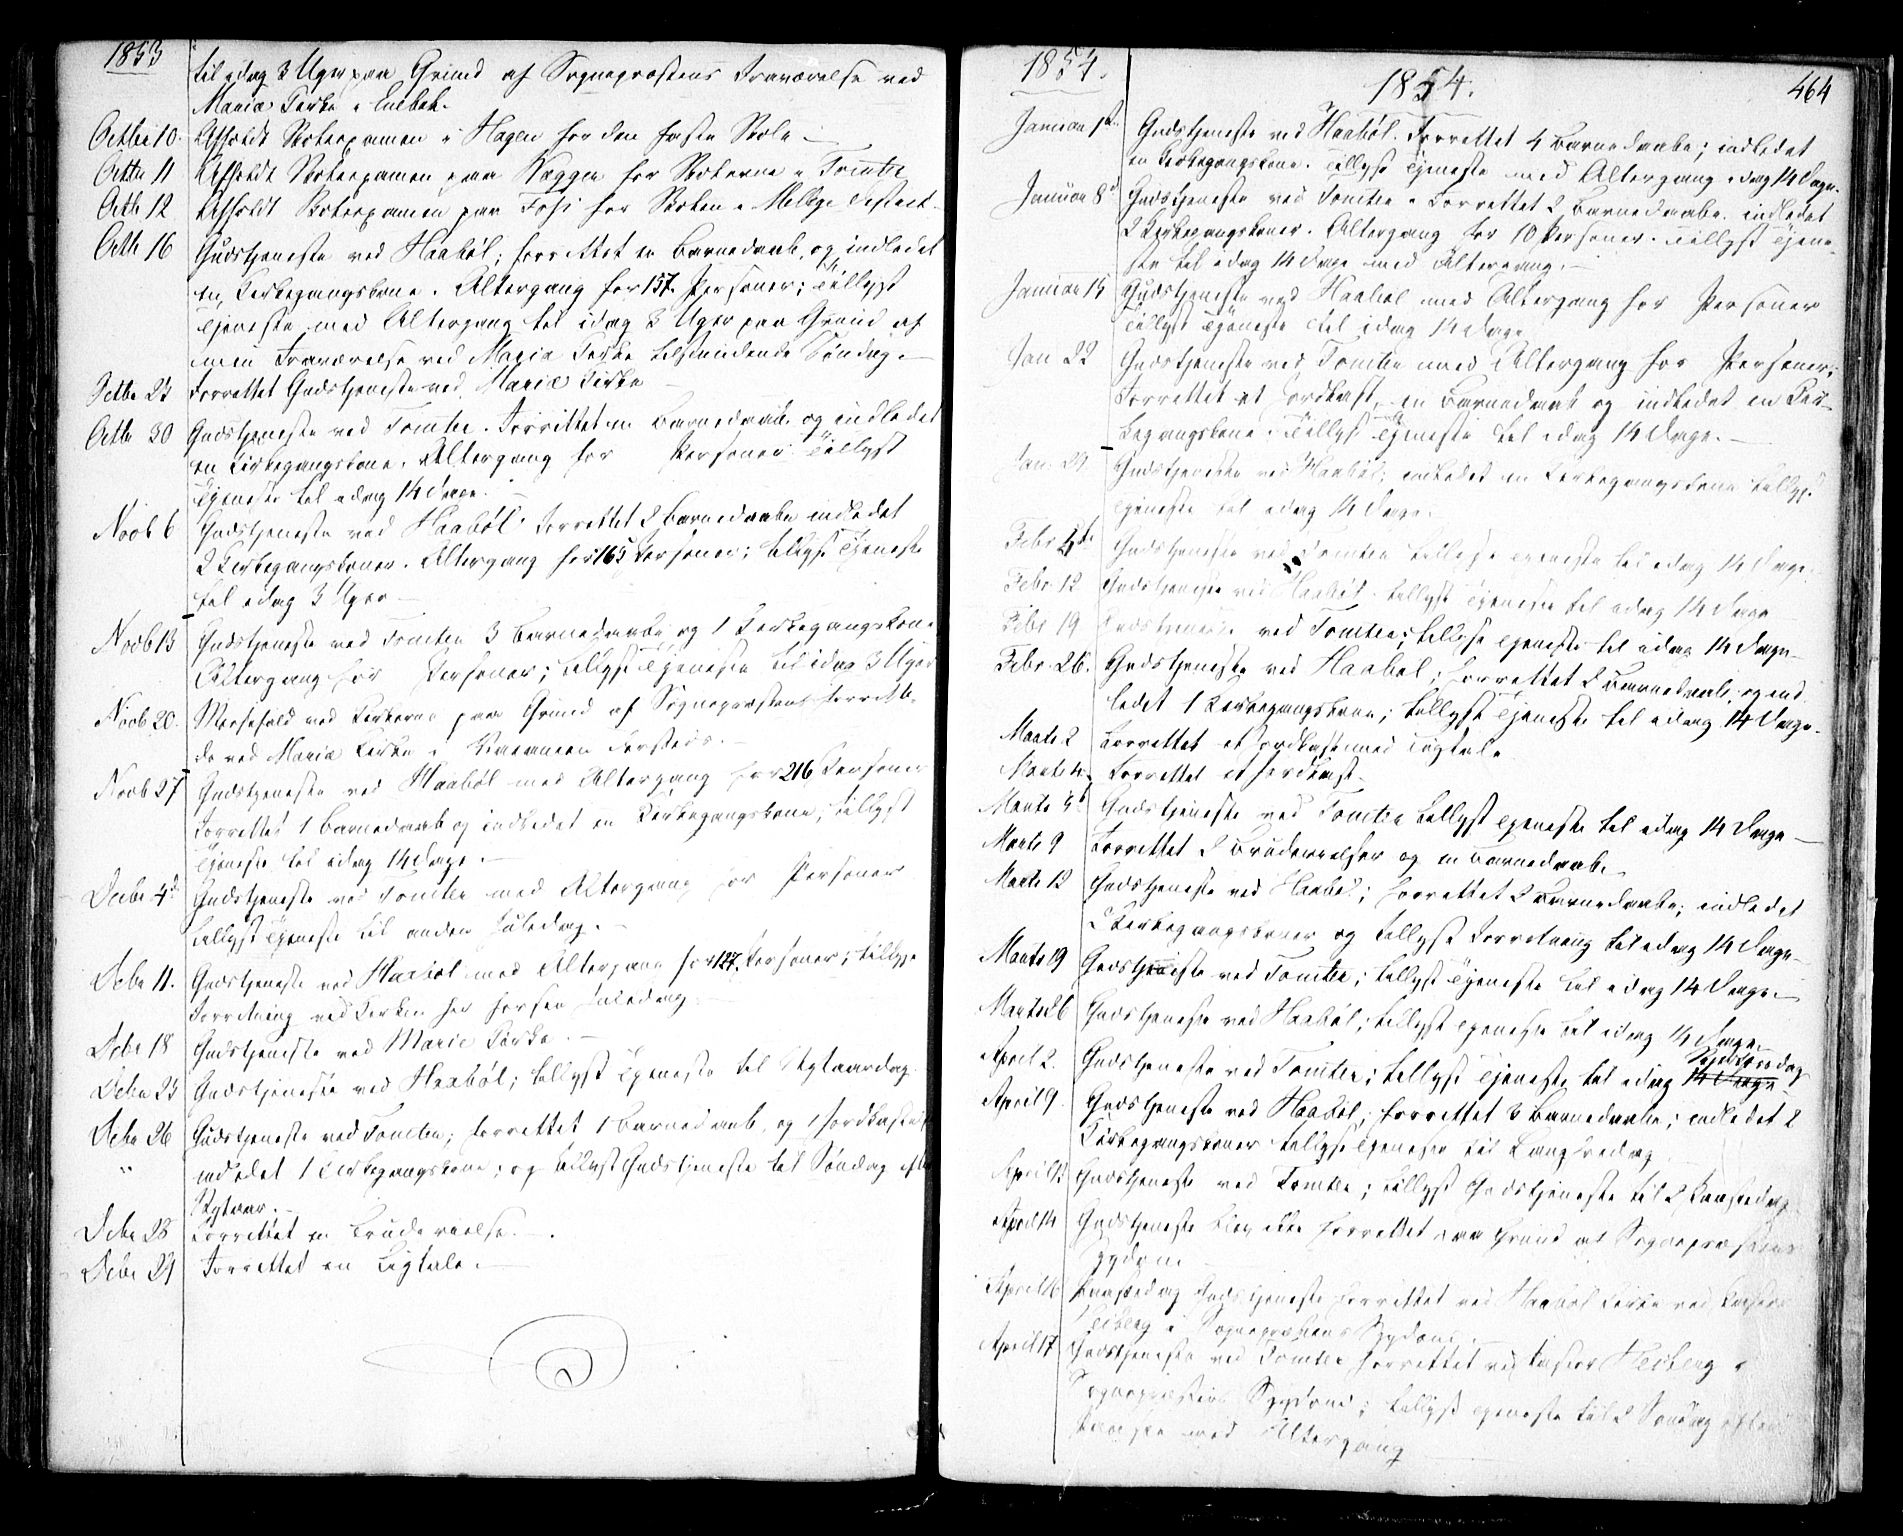 1853
til idag 3 Uger paa Grund af Sognepræstens Fraværelse ved
Mariæ Kirke i
Octbr 10. Afholdt Skoleexamen i Hagen for den faste Skole —
Octbr 11 Afholdt Skoleexamen paa for Skolerne i Tomter
Octb 12 Afholdt Skoleexamen paa Foss for Skolen i District
Octb 16 Gudstjeneste ved Haabøl; forrettet en Barnedaab, og indledet
en Kirkegangskone. Altergang for 157 Personer; Tillyst
Tjeneste med Altergang til idag 3 Uger paa Grund af
min Fraværelse ved Maria Kirke tilstundende Søndag. —
Octbr 23 Forrettet Gudstjeneste ved Mariæ Kirke —
Octbr 30 Gudstjeneste ved Tomter. Forrettet en Barnedaab og indledet
en Kirkegangskone. Altergang for Personer. Tillyst
Tjeneste til idag 14 Dage.
Novb 6 Gudstjeneste ved Haabøl. Forrettet 2 Barnedaabe indledet
2 Kirkegangskoner. Altergang for 165 Personer; tillyst Tjeneste
til idag 3 Uger —
Novb 13 Gudstjeneste ved Tomter 3 Barnedaabe og 1 Kirkegangskone
Altergang for Personer; tillyst Tjeneste til idag 3 Uger
Novb 20. Messefald ved Kirkerne paa Grund af Sognepræstens
ved Maria Kirke i
Novb 27 Gudstjeneste ved Haabøl med Altergang for 216 Personer
Forrettet 1 Barnedaab og indledet en Kirkegangskone; tillyst
Tjeneste til idag 14 Dage. —
Decbr 4de Gudstjeneste ved Tomter med Altergang for Personer
tillyst Tjeneste til anden Juledag. —
Debr 11. Gudstjeneste ved Haabøl med Altergang for 127 Personer; tillyst
Forretning ved Kirken her første Juledag
Debr 18 Gudstjeneste ved Marie Kirke. —
Debr 25 Gudstjeneste ved Haabøl; tillyst Tjeneste til Nytaarsdag.
Debr 26 Gudstjeneste ved Tomter; forrettet 1 Barnedaab, og 1 Jordkastelse
" indledet 1 Kirkegangskone; og tillyst Gudstjeneste til Søndag efter
Nytaar. —
Debr 28 Forrettet en Brudevielse. —
Debr 29 Forrettet en Ligtale. —
1854.
1854.
464
Januar 1ste Gudstjeneste ved Haabøl. Forrettet 4 Barnedaabe; indledet
en Kirkegangskone. Tillyst Tjeneste med Altergang idag 14 Dage.
Januar 8de Gudstjeneste ved Tomter. Forrettet 2 Barnedaabe. indledet
2 Kirkegangskoner. Altergang for 10 Personer. Tillyst Tjene-
ste til idag 14 Dage med Altergang. —
Januar 15 Gudstjeneste ved Haabøl med Altergang for Personer
Tillyst Tjeneste til idag 14 Dage
Jan 22 Gudstjeneste ved Tomter med Altergang for Personer;
Forrettet et Jordkast, en Barnedaab og indledet en Kir-
kegangskone. Tillyst Tjeneste til idag 14 Dage. —
Jan. 29 Gudstjeneste ved Haabøl; indledet en Kirkegangskone tillyst
Tjeneste til idag 14 Dage.
Febr Gudstjeneste ved Tomter tillyst Tjeneste til idag 14 Dage.
Febr 12 Gudstjeneste ved Haabøl. tillyst Tjeneste til idag 14 Dage
Febr 19 Gudstjeneste ved Tomter; tillyst Tjeneste til idag 14 Dage —
Febr 26. Gudstjeneste ved Haabøl; forrettet 2 Barnedaab, og ind
ledet 1 Kirkegangskone; tillyst Tjeneste til idag 14 Dage.
Marts 2 Forrettet et Jordkast med Ligtale
Marts 4. Forrettet et Jordkast —
Marts 5te Gudstjeneste ved Tomter tillyst Tjeneste til idag 14 Dage —
Marts 9 Forrettet 2 Brudevielser og en Barnedaab. —
Marts 12 Gudstjeneste ved Haabøl; forrettet 2 Barnedaabe; indledet
2 Kirkegangskoner og tillyst Forretning til idag 14 Dage —
Marts 19 Gudstjeneste ved Tomter; tillyst Tjeneste til idag 14 Dage. —
Marts 26 Gudstjeneste ved Haabøl; tillyst Tjeneste til idag 14 Dage —
April 2. Gudstjeneste ved Tomter; tillyst Tjeneste til idag 14 Dage Skjærtorsdag
April 9. Gudstjeneste ved Haabøl; forrettet 3 Barnedaabe; indledet 2
Kirkegangskoner tillyst Tjeneste til Langfredag
April 13 Gudstjeneste ved Tomter; tillyst Gudstjeneste til 2 Paaskedag
April 14 Gudstjeneste blev ikke forrettet paa Grund af Sognepræstens
Sygdom.
April 16 Paaskedag Gudstjeneste forrettet ved Haabøl Kirke ved Pastor
Heiberg i Sognepræstens Sygdom. —
April 17 Gudstjeneste ved Tomter forrettet ved Pastor Heiberg i
Sognepræstens Sygdom; tillyst Tjeneste til 2 Søndag efter
Paaske med Altergang